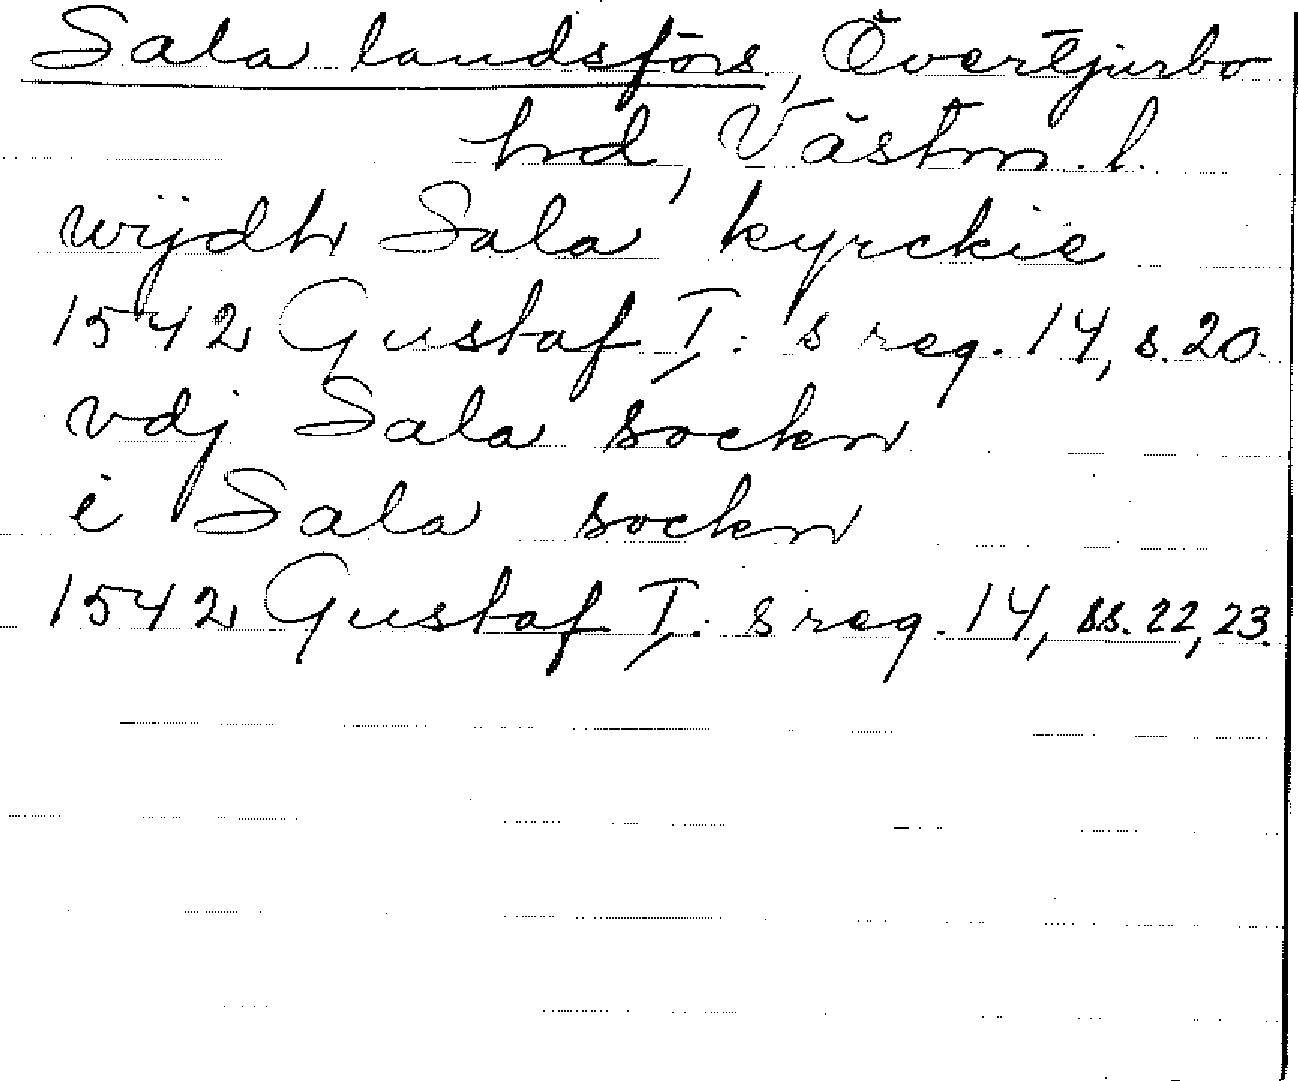 Sala landsförs, Övertjurbo
hrd, Västm. l.
wijdh Sala kyrckie
1542 Gustaf I: s reg. 14, s. 20.
vdj Sala sockn
i Sala sockn
1542 Gustaf I: s reg. 14, ss. 22, 23.